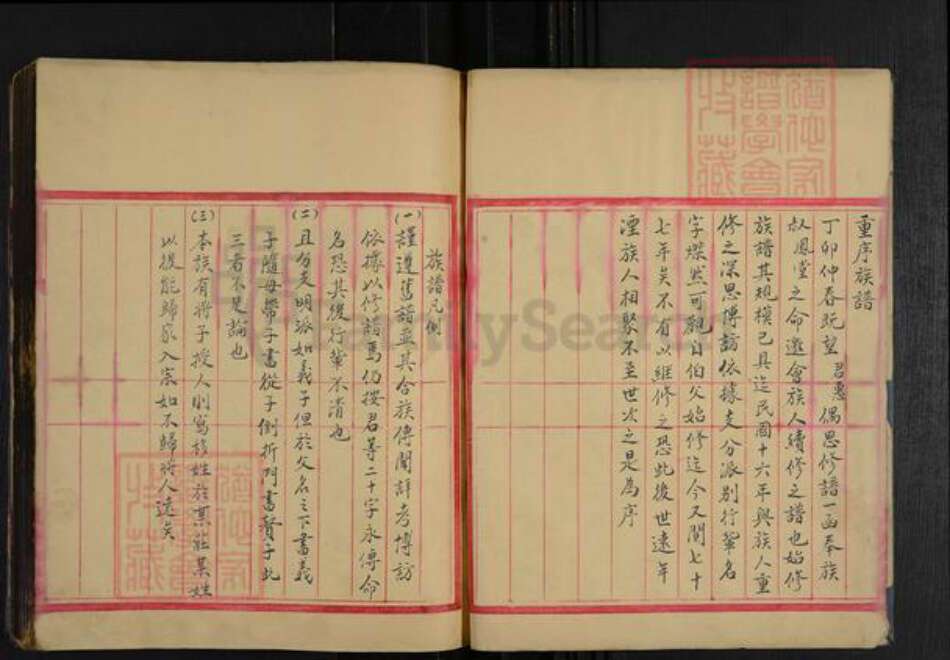 重序族譜
丁卯仲春既望君惠偶思修譜一函奉族
叔鳳堂之命邀會族人續修之譜也始修
族譜其規模已具迄民國十六年與族人重
修之深思博訪依據支分派別行輩名
字燦然可觀自伯父始修迄今又閱七十
七年矣不有以維修之恐此後世遠年
湮族人相聚不至世次之是為序
族譜凡例
(一)謹遵舊譜並其合族傳聞詳考博訪
依據以修譜焉仍按君等二十字永傳命
名恐其後行輩不清也
(二)且分支明派如義子但於父名之下書義
子隨母帶子書從子倒折門書賢子此
三者不足論也
(三)本族有將子授人則寫移姓於某莊某姓
以後能歸家入宗如不歸將人遠矣
FamilySearch